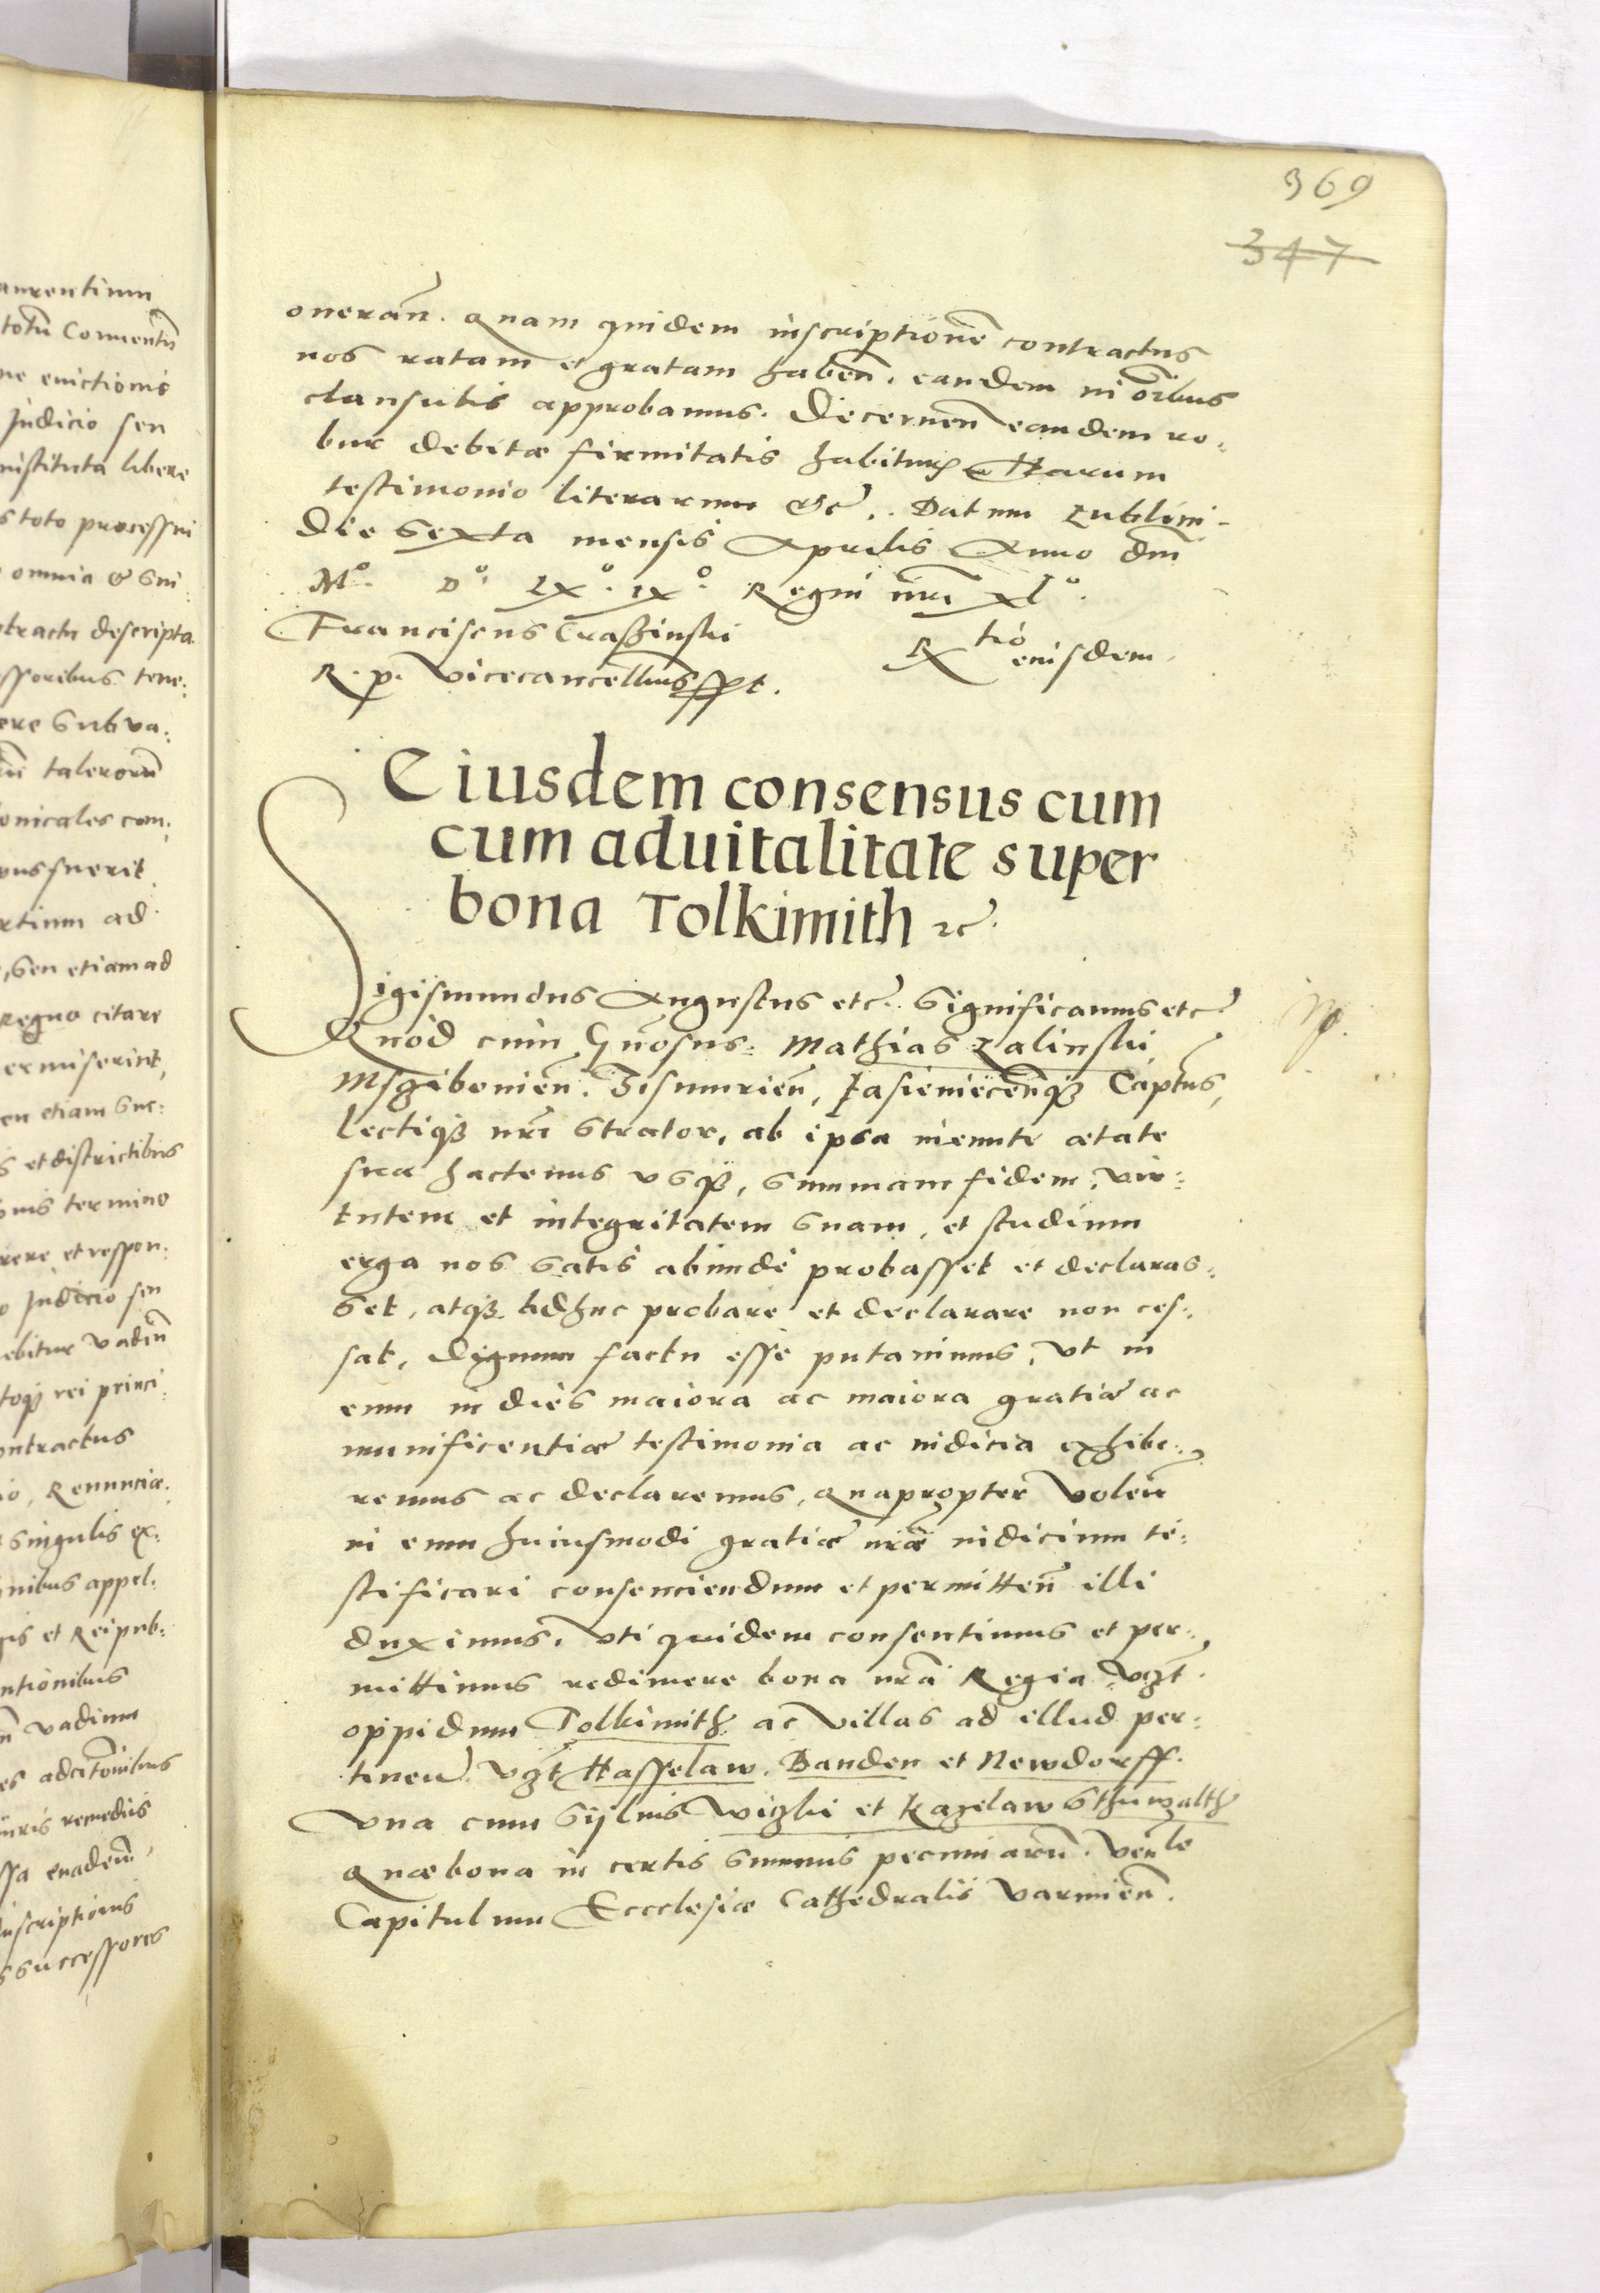 369
347
onerañ. Quam quidem inscriptionẽ contractus
nos ratam et gratam habeñ. eandem in oĩbus
clausulis approbamus. Decerneñ eandem ro-
bur debitæ firmitatis habitur Harum
testimonio literarum &c. Datum Lublini
Die Sexta mensis Aprilis Anno dm̃
Mº. Dº. LXº. IXº. Regni nr̃i XLº.
Franciscus Craßinski
R. p. Vicecancellarius sspt.
Rtio eiusdem.
Eiusdem consensus cum
cum aduitalitate super
bona Tolkimith ec.
Sigismundus Augustus etc. Significamus etc
Quod cum Gñosus: Mathias Zalinski,
Msczibovieñ. Tisumrieñ, Jasienieceñq₃ Captũs,
lectiq₃ nr̃i Strator, ab ipsa ineunte ætate
sua hactenus usq₃, Summam fidem, vir-
tutem et integritatem suam, et studium
erga nos satis abunde probasset et declaras-
set, atq₃ adhuc probare et declarare non ces-
sat, dignum factu esse putauimus, Vt in
eum in dies maiora ac maiora gratiæ ac
munificentiæ testimonia ac indicia exhibe-
remus ac declaremus, Quapropter Voleñ
in eum huiusmodi gratiæ nr̃æ indicium te-
stificari consenciendum et permitteñ illi
duximus, Vti quidem consentimus et per-
mittimus redimere bona nr̃a Regia, vzt.
oppidum Tolkimith ac Villas ad illud per-
tineñ. Vzt Hasselaw, Banden et Newdorff.
Vna cum Syluis Wizki et Kazelaw Sthuwzalth
Quæ bona in certis summis pecuniarũ. Veñle
Capitulum Ecclesiæ Cathedralis Varmieñ.
aurentium
totũ Conuentũ
ne euictionis
Judicio seu
nstituta libere
s toto processui
omnia & Sin
tractu descripta
ssoribus tene:
ere Sub va:
talerorũ
onicales com:
ous fuerit
rtium ad
, Seu etiam ad
Regno citare
ermiserint,
en etiam Suc:
s et districtibus
onis termino
rere et respon:
o Judicio seu
ebitur vadiũ
toq₃ rei princi:
ontractus
io, Renunciæ
Singulis ex:
nibus appel:
gis et Reipub:
ntionibus
vadium
es aditoñibus
iuris remedijs
ssa euadeñ
inscriptionis
Successores